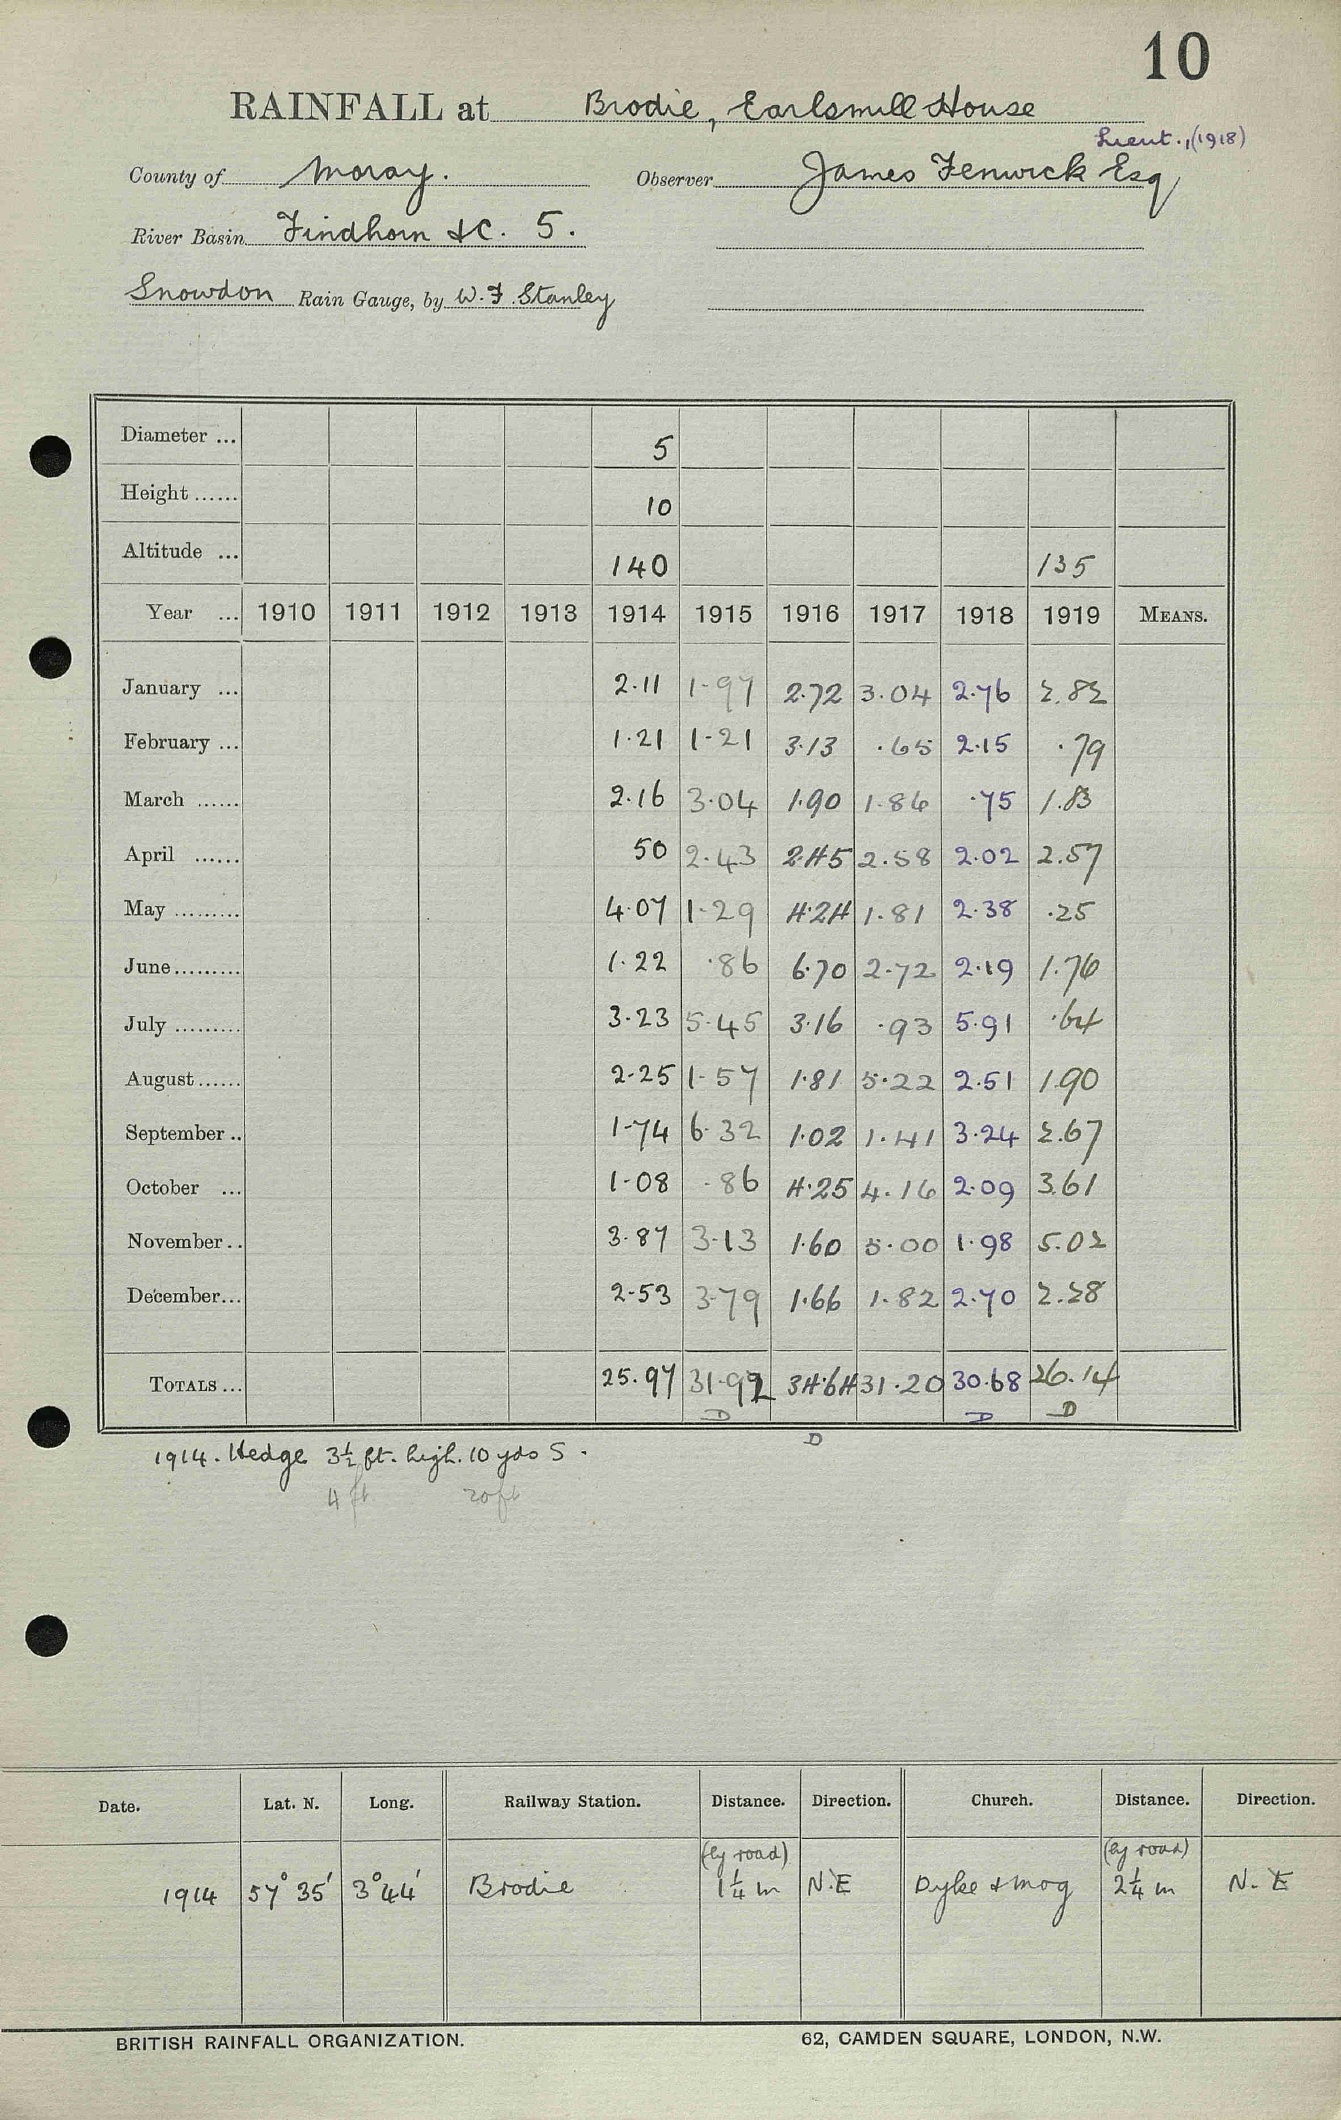 10
RAINFALL at Brodie, Earlsmill House
Lieut., (1918)
County of Moray. Observer James Fenwick Esq
River Basin Findhorn &c. 5.
Snowdon Rain Gauge, by W. F. Stanley
Diameter ... 5
Height ...... 10
Altitude ... 140 135
Year ... 1910 1911 1912 1913 1914 1915 1916 1917 1918 1919 MEANS.
January ... 2.11 1.97 2.72 3.04 2.76 2.82
February ... 1.21 1.21 3.13 .65 2.15 .79
March ...... 2.16 3.04 1.90 1.86 .75 1.83
April ...... 50 2.43 2.45 2.58 2.02 2.57
May ......... 4.07 1.29 4.24 1.81 2.38 .25
June ......... 1.22 .86 6.70 2.72 2.19 1.76
July ......... 3.23 5.45 3.16 .93 5.91 .64
August ...... 2.25 1.57 1.81 5.22 2.51 1.90
September .. 1.74 6.32 1.02 1.41 3.24 2.67
October ... 1.08 .86 4.25 4.16 2.09 3.61
November .. 3.87 3.13 1.60 5.00 1.98 5.02
December ... 2.53 3.79 1.66 1.82 2.70 2.28
TOTALS ... 25.97 31.92 34.64 31.20 30.68 26.14
D D D D
1914. Hedge 3½ ft. high. 10 yds S.
4 ft 20 ft
Date. Lat. N. Long. Railway Station. Distance. Direction. Church. Distance. Direction.
(by road) (by road)
1914 57° 35' 3° 44' Brodie 1¼ m N.E Dyke & Moy 2¼ m N.E
BRITISH RAINFALL ORGANIZATION. 62, CAMDEN SQUARE, LONDON, N.W.